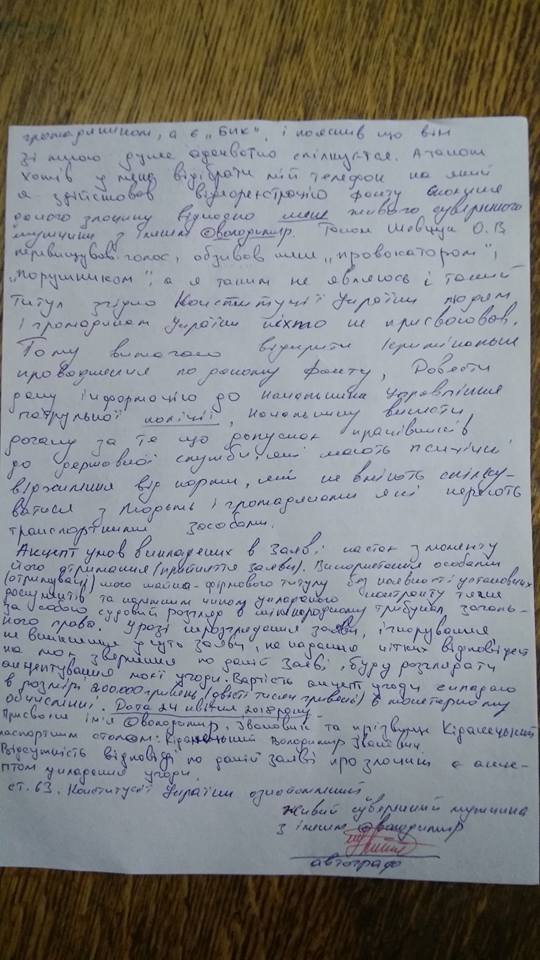 громадянином, а є "Бик", і пояснив що він
зі мною дуже адекватно спілкується. А також
хотів у мене відібрати мій телефон на який
я здійснював відеореєстрацію факту скоєння
даного злочину відносно мене живого суверенного
мужчини з іменем @володимир. Також Шевчук О.В
перевищував голос, обзивав мене "провокатором",
"порушником", а я таким не являюсь і такий
титул згідно Конституції України людям
і громадянам України ніхто не присвоював.
Тому вимагаю відкрити кримінальне
провадження по даному факту, Довести
дану інформацію до начальника управління
патрульної поліції, начальнику винести
догану за те що допускає працівників
до державної служби, які мають психічні
відхилення від норми, які не вміють спілку-
ватися з людьми і громадянами які керують
транспортними засобами.
Акцепт умов викладених в Заяві настає з моменту
його отримання (прийняття заяви). Використання особами
(отримувачі) мого майна-фірмового титулу без наявності установчих
документів та належним чином укладеного контракту тягне
за собою судовий розгляд в міжнародному трибуналі загаль-
ного права. У разі нерозглядання заяви, ігнорування
не вникнення у суть заяви, не надання чітких відповідей
на моє звернення по даній заяві, буду розглядати
акцептування моєї угоди. Вартість акцепт угоди складає
в розмірі 200000 гривень (двісті тисяч гривень) в монетарному
обчисленні. Дата 24 квітня 2018 року.
Присвоєне ім'я @володимир, Іванович та прізвище
паспортним столом: Володимир Іванович.
Відсутність відповіді по даній заяві про злочин є акце-
птом укладення угоди.
ст. 63. Конституції України ознайомлений
живий суверенний мужчина
з іменем @володимир
автограф